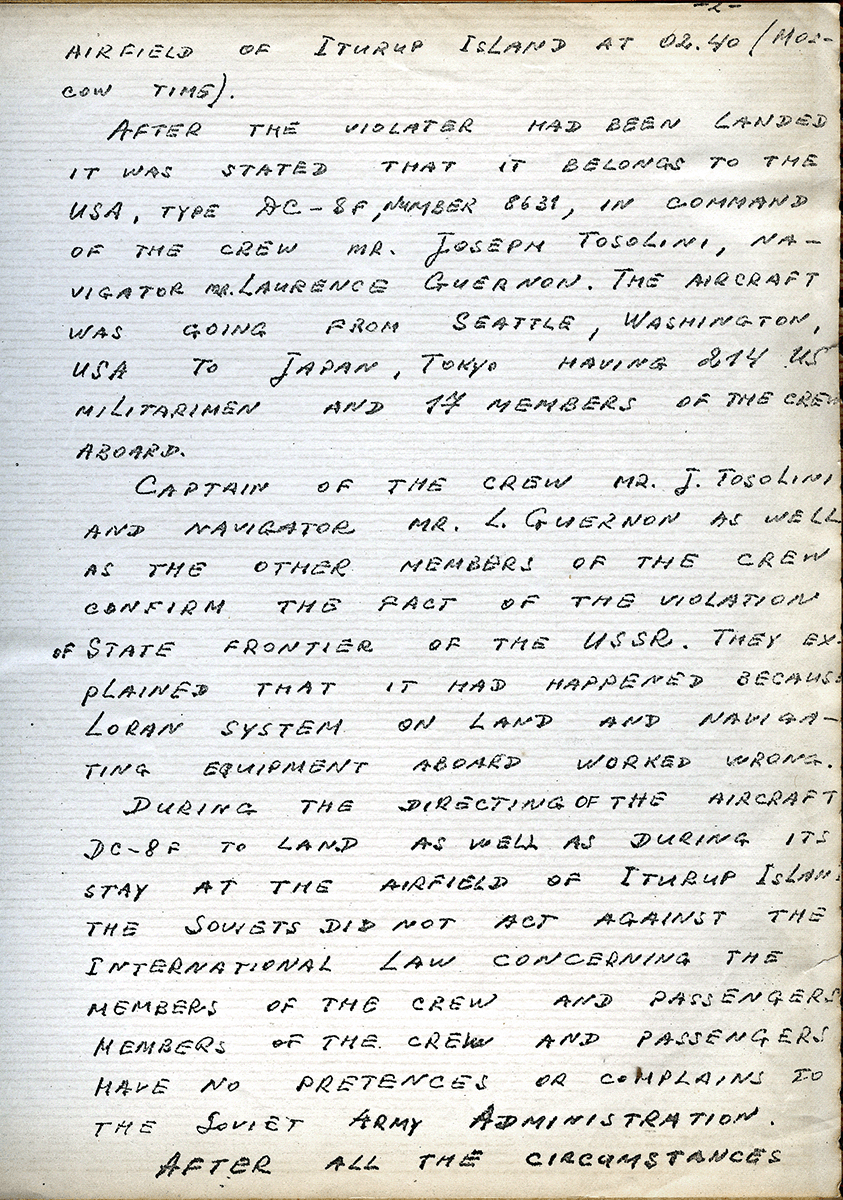 -2-
AIRFIELD OF ITURUP ISLAND AT 02.40 (MOS-
COW TIME).
AFTER THE VIOLATER HAD BEEN LANDED
IT WAS STATED THAT IT BELONGS TO THE
USA, TYPE DC-8F, NUMBER 8631, IN COMMAND
OF THE CREW MR. JOSEPH TOSOLINI, NA-
VIGATOR MR. LAURENCE GUERNON. THE AIRCRAFT
WAS GOING FROM SEATTLE, WASHINGTON,
USA TO JAPAN, TOKYO HAVING 214 US
MILITARIMEN AND 17 MEMBERS OF THE CREW
ABOARD.
CAPTAIN OF THE CREW MR. J. TOSOLINI
AND NAVIGATOR MR. L. GUERNON AS WELL
AS THE OTHER MEMBERS OF THE CREW
CONFIRM THE FACT OF THE VIOLATION
OF STATE FRONTIER OF THE USSR. THEY EX-
PLAINED THAT IT HAD HAPPENED BECAUSE
LORAN SYSTEM ON LAND AND NAVIGA-
TING EQUIPMENT ABOARD WORKED WRONG.
DURING THE DIRECTING OF THE AIRCRAFT
DC-8F TO LAND AS WELL AS DURING ITS
STAY AT THE AIRFIELD OF ITURUP ISLAN
THE SOVIETS DID NOT ACT AGAINST THE
INTERNATIONAL LAW CONCERNING THE
MEMBERS OF THE CREW AND PASSENGERS
MEMBERS OF THE CREW AND PASSENGERS
HAVE NO PRETENCES OR COMPLAINS TO
THE SOVIET ARMY ADMINISTRATION.
AFTER ALL THE CIRCUMSTANCES